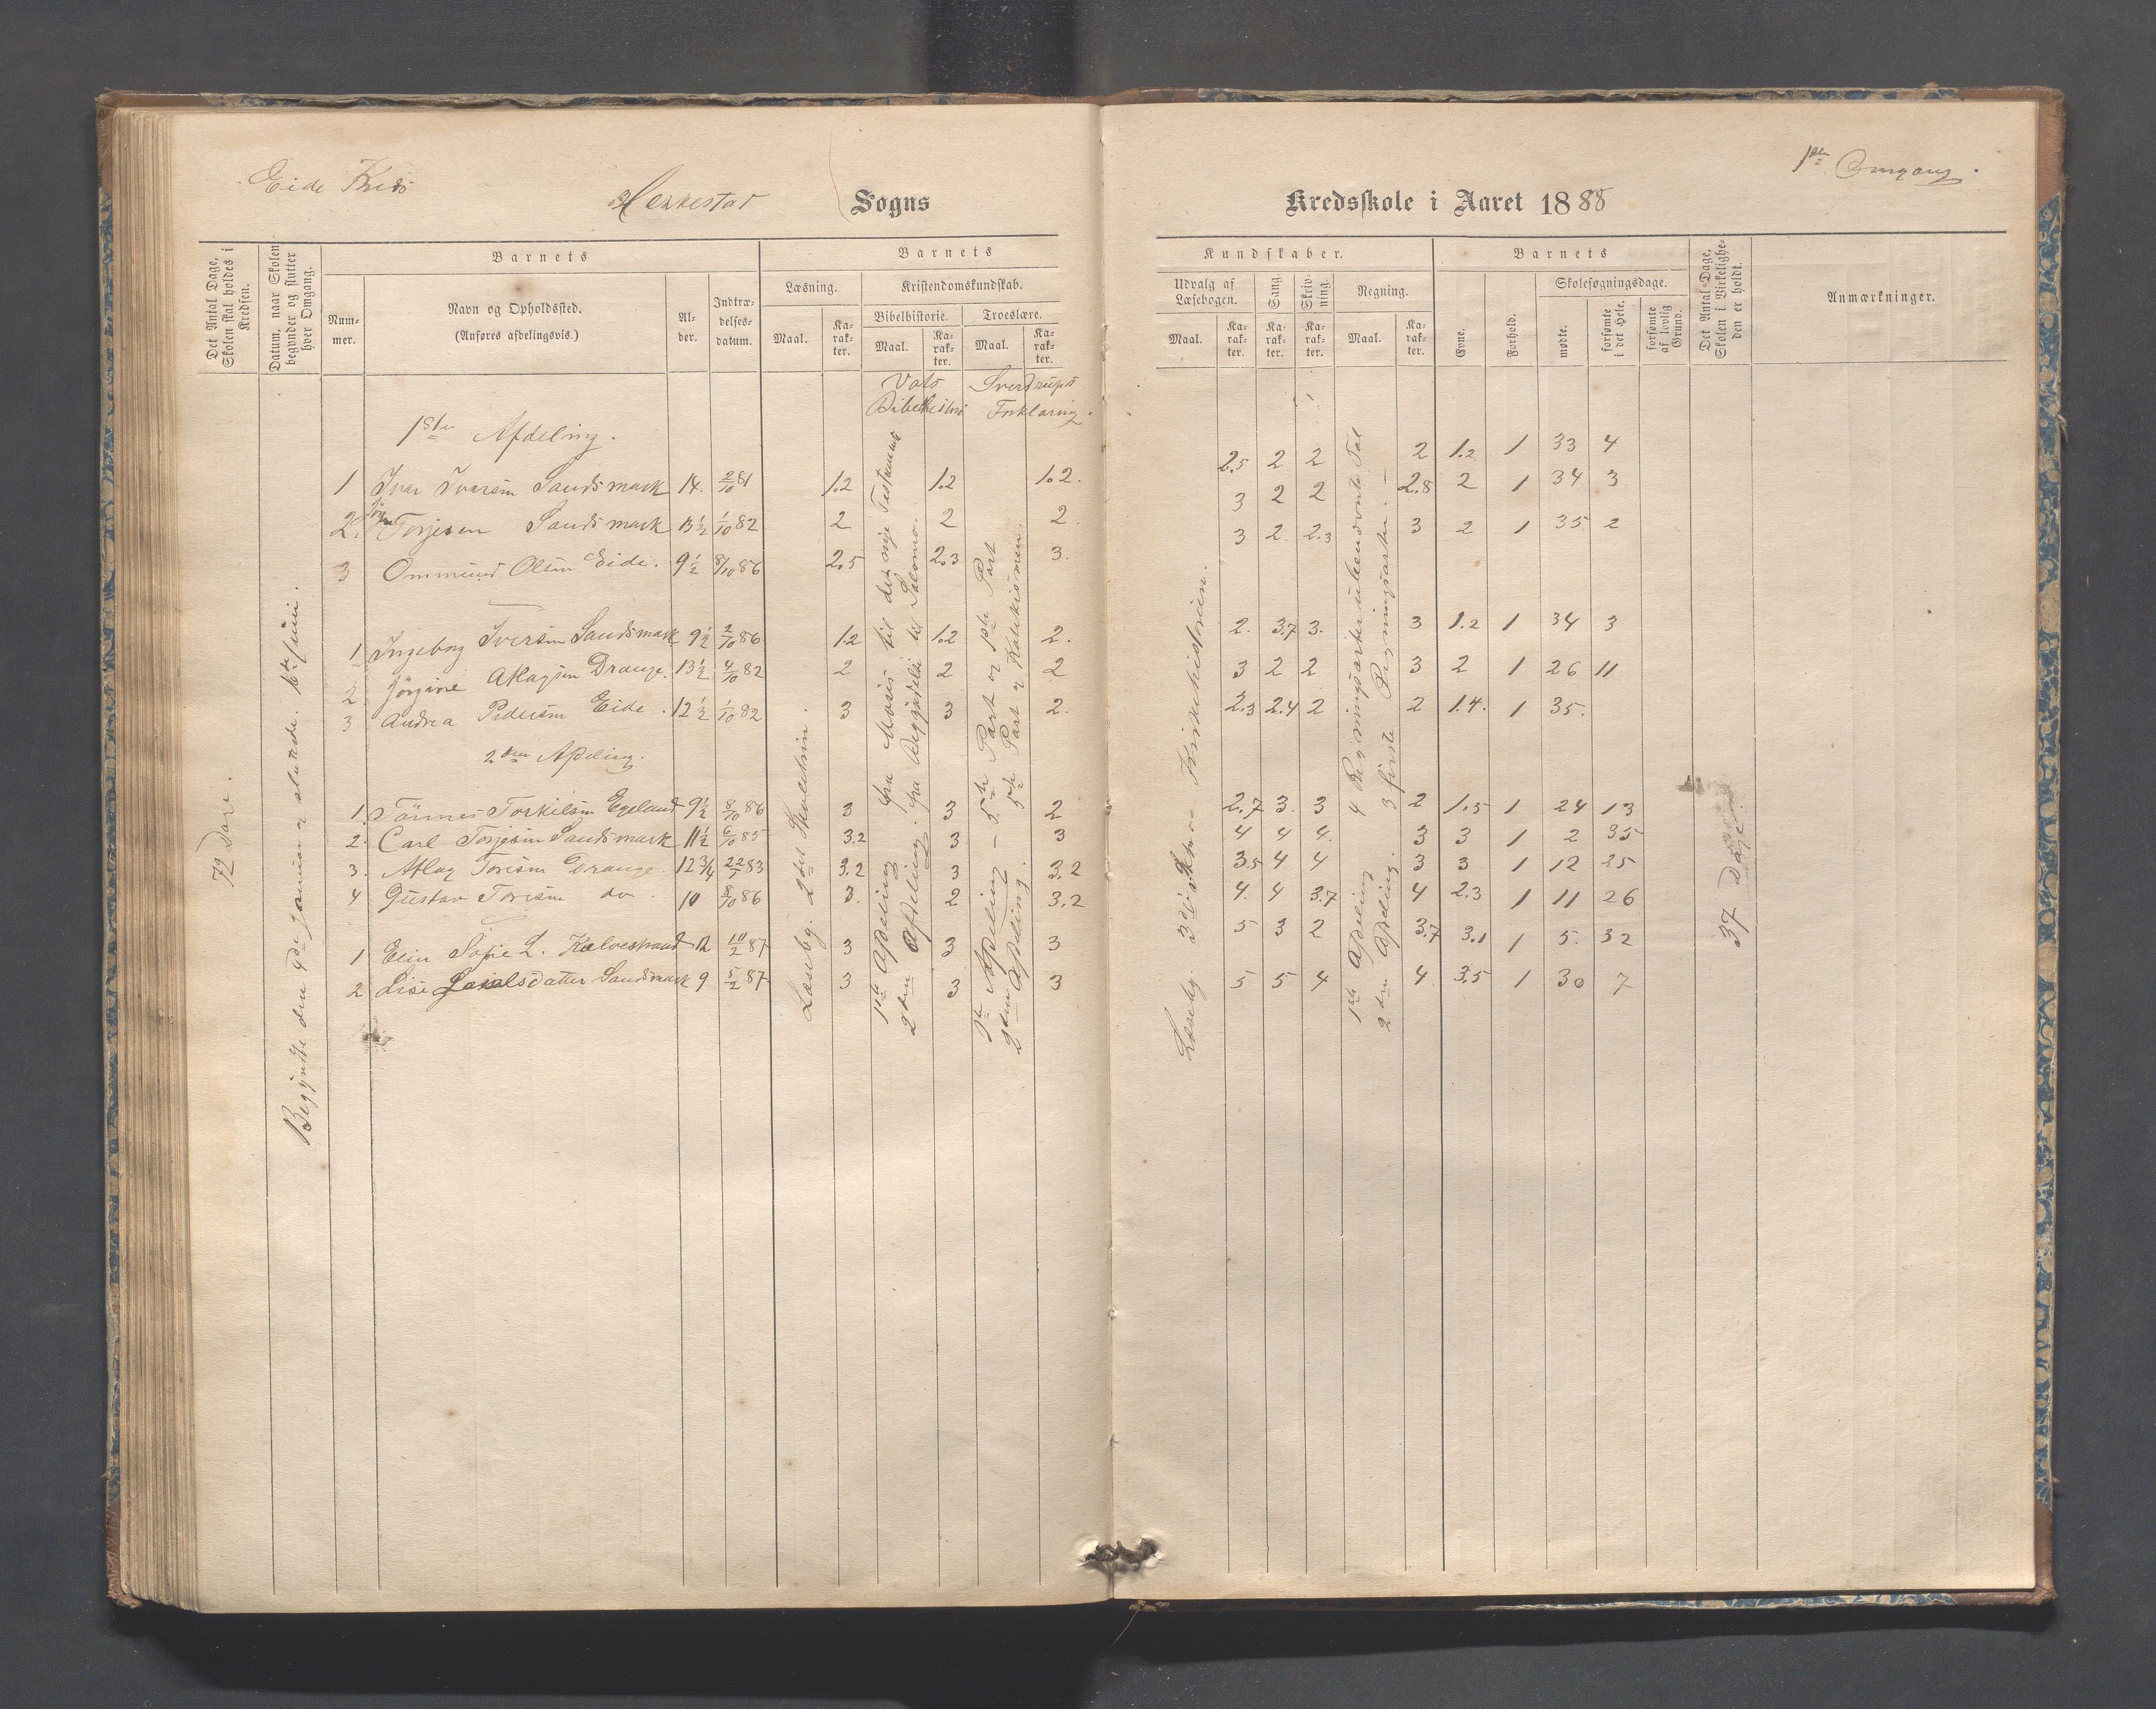 Eide Kreds
Heskestad Sogns
Kredsskole i Aaret 1888
1ste Omgang.
Det Antal Dage, Skolen skal holdes i Kredsen.
Datum, naar Skolen begynder og slutter hver Omgang.
Barnets
Nummer.
Navn og Opholdssted.
(Anføres afdelingsvis.)
Alder.
Indtrædelsesdatum.
Barnets
Læsning.
Maal.
Karakter.
Kristendomskundskab.
Bibelhistorie.
Maal.
Karakter.
Troeslære.
Maal.
Karakter.
Kundskaber.
Udvalg af Læsebogen.
Maal.
Karakter.
Sang.
Karakter.
Skrivning.
Karakter.
Regning.
Maal.
Karakter.
Barnets
Evne.
Forhold.
Skolesøgningsdage.
mødte.
forsømte i det Hele.
forsømte af lovlig Grund.
Det Antal Dage, Skolen i Virkeligheden er holdt.
Anmærkninger.
Vogts Bibelhistorie
Sverdrups Forklaring.
1ste Afdeling.
1 Ivar Ivarsen Sandsmark 14. 2/10 81 1.2 1.2 1.2. 2.5 2 2 2 1.2 1 33 4
2. Torjesen Sandsmark 13 1/2 1/10 82 2 2 2. 3 2 2 2.8 2 1 34 3
3 Ommund Olsen Eide. 9 1/2 8/10 86 2.5 2.3 3. 3 2. 2.3 3 2 1 35 2
1 Ingeborg Iversen Sandsmark 9 1/2 2/10 86 1.2 1.2 2. 2. 3.7 3. 3 1.2 1 34 3
2 Jörgine Aslagsen Drange. 13 1/2 4/10 82 2 2 2 3 2 2 3 2 1 26 11
3 Andrea Pedersen Eide. 12 1/2 1/10 82 3 3 2. 2.3 2.4 2 2 1.4. 1 35.
2den Afdeling.
1. Tönnes Torkilsen Egeland 9 1/2 8/10 86 3 3 2 2.7 3. 3 2 1.5 1 24 13
2. Carl Torjesen Sandsmark 11 1/2 6/10 85 3.2 3 3 4 4 4. 3 3 1 2 35
3. Aslag Toresen Drange. 12 3/4 22/7 83 3.2 3 3.2 3.5 4 4 3 3 1 12 25
4 Gustav Toresen do. 10 8/10 86 3. 2 3.2 4. 4 3.7 4 2.3 1 11 26
1 Elin Sofie L. Kalvestrand 12 10/2 87 3 3 3 5 3 2 3.7 3.1 1 5. 32
2 Lise datter Sandsmark 9 5/2 87 3 3 3 5 5 4 4 3.5 1 30 7
72 Dage.
Begyndte den 9de Januar og sluttede 16de Juni.
Læsebg. 2det Skoletrin.
1ste Afdeling fra Moses til det nye Testamente
2den Afdeling fra Begyndelse til Salomo.
1ste Afdeling - 5te Part og 1ste Part
2den Afdeling. 5te Part af Katekismen.
Læsebg. 3die Kirkehistorien.
1ste Afdeling 4 Regningsarter i ubenævnte Tal
2den Afdeling. 3 første Regningsarter. -
37 Dage.